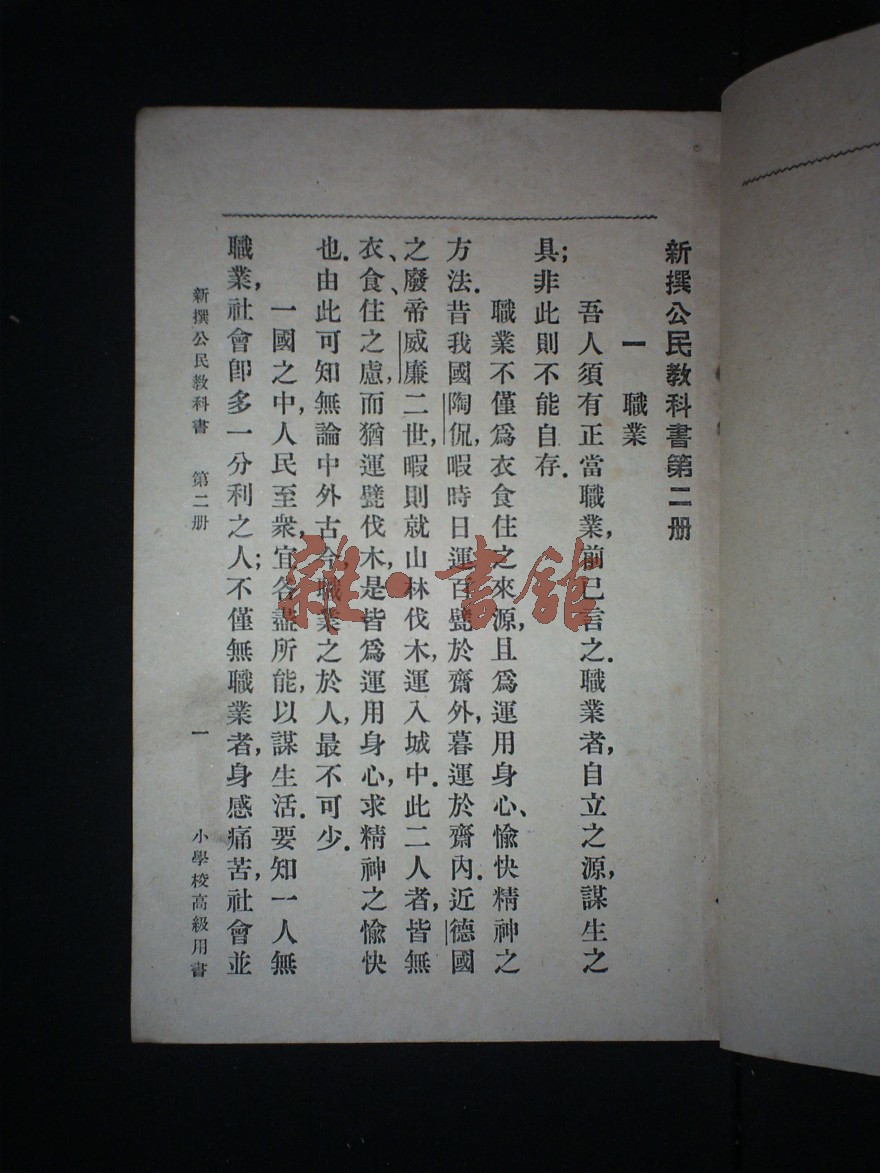 新撰公民教科書第二册
一　職業
吾人須有正當職業，前已言之．職業者，自立之源，謀生之
具；非此則不能自存．
職業不僅爲衣食住之來源，且爲運用身心、愉快精神之
方法．昔我國陶侃，暇時日運百甓於齋外，暮運於齋內．近德國
之廢帝威廉二世，暇則就山林伐木，運入城中．此二人者，皆無
衣、食、住之慮，而猶運甓伐木，是皆爲運用身心，求精神之愉快
也．由此可知無論中外古今，職業之於人，最不可少．
一國之中，人民至衆，宜各盡所能，以謀生活．要知一人無
職業，社會卽多一分利之人；不僅無職業者，身感痛苦，社會並
新撰公民教科書　第二册　一　小學校高級用書
雜·書館